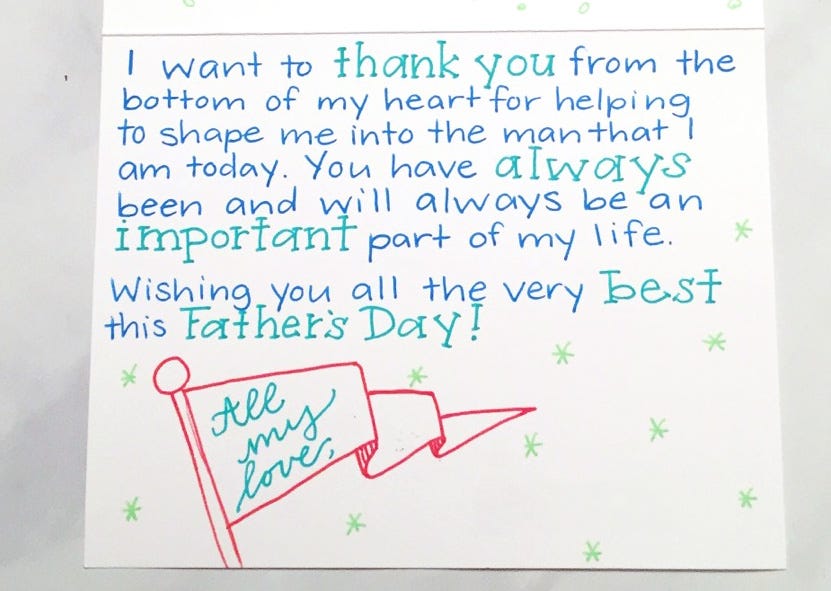 I want to thank you from the
bottom of my heart for helping
to shape me into the man that I
am today. You have always
been and will always be an
important part of my life.
Wishing you all the very best
this Father's Day!
All
my
love,